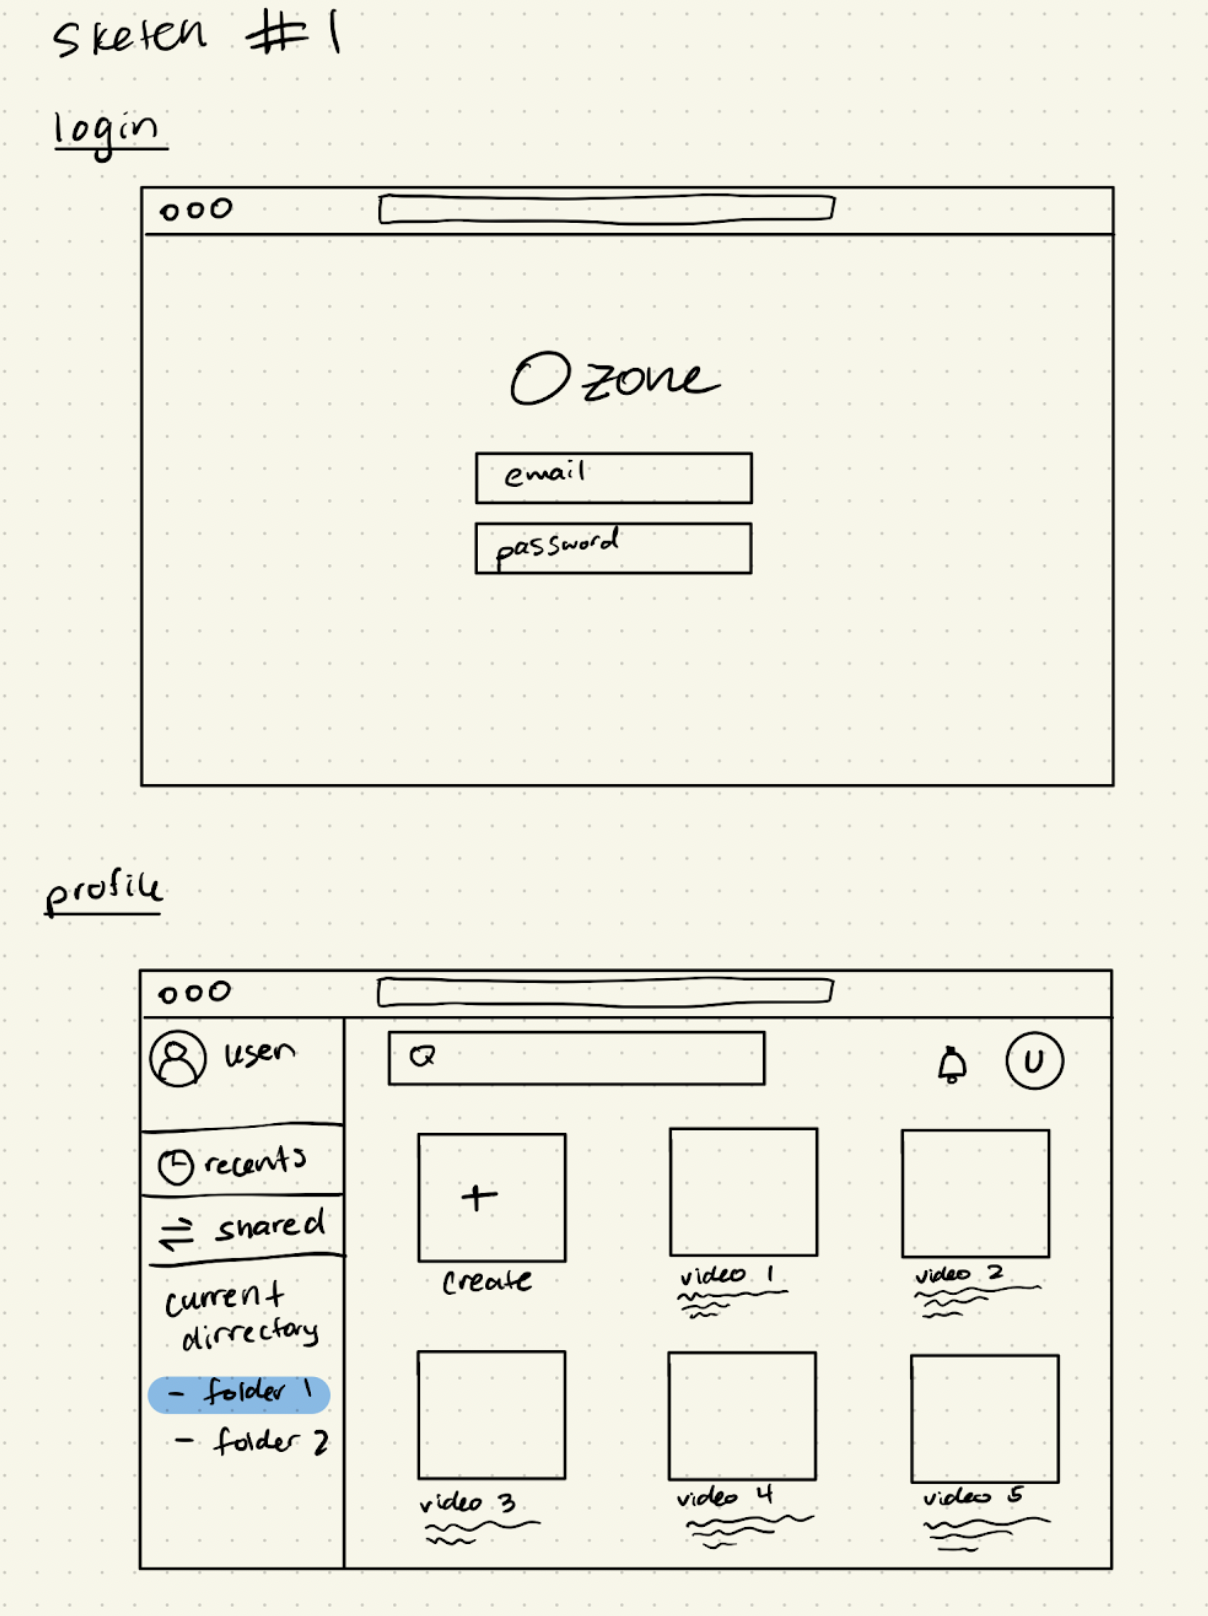 Sketch #1
login
Ozone
email
password
profile
user
U
recents
shared
current
dirrectory
- folder 1
- folder 2
+
Create
video 1
video 2
video 3
video 4
video 5